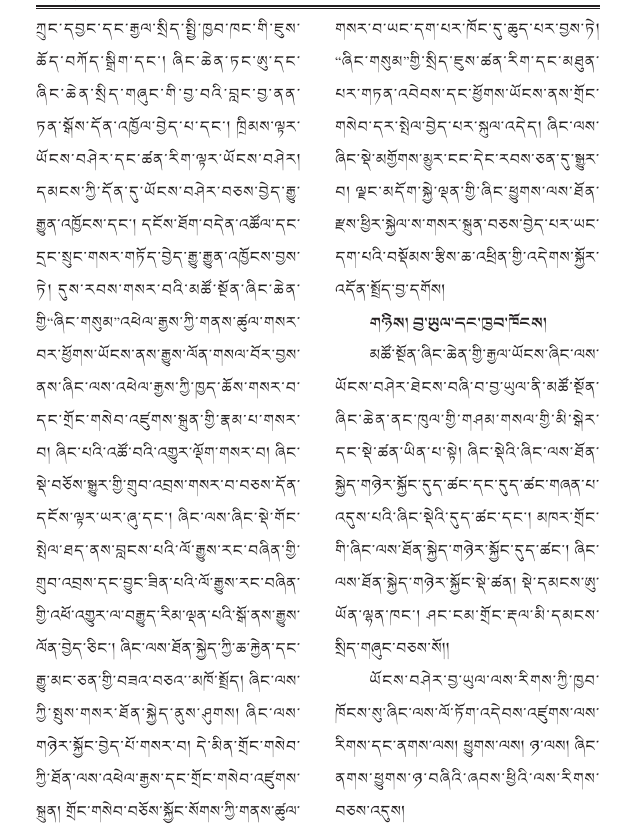 ཀྲུང་དབྱང་དང་རྒྱལ་སྲིད་སྤྱི་ཁྱབ་ཁང་གི་ཇུས་
ཆོད་བཀོད་སྒྲིག་དང་། ཞིང་ཆེན་ཏང་ཨུ་དང་
ཞིང་ཆེན་སྲིད་གཞུང་གི་བྱ་བའི་བླང་བྱ་ནན་
ཏན་སྒོས་དོན་འཁྱོལ་བྱེད་པ་དང་། ཁྲིམས་ལྟར་
ཡོངས་བཤེར་དང་ཚན་རིག་ལྟར་ཡོངས་བཤེར།
དམངས་ཀྱི་དོན་དུ་ཡོངས་བཤེར་བཅས་བྱེད་རྒྱུ་
རྒྱུན་འཁྱོངས་དང་། དངོས་ཐོག་བདེན་འཚོལ་དང་
དྲང་སྲུང་གསར་གཏོད་བྱེད་རྒྱུ་རྒྱུན་འཁྱོངས་བྱས་
ཏེ། དུས་རབས་གསར་བའི་མཚོ་སྔོན་ཞིང་ཆེན་
གྱི“ཞིང་གསུམ”འཕེལ་རྒྱས་ཀྱི་གནས་ཚུལ་གསར་
བར་ཕྱོགས་ཡོངས་ནས་རྒྱུས་ལོན་གསལ་པོར་བྱས་
ནས་ཞིང་ལས་འཕེལ་རྒྱས་ཀྱི་ཁྱད་ཆོས་གསར་བ་
དང་གྲོང་གསེབ་འཛུགས་སྐྲུན་གྱི་རྣམ་པ་གསར་
བ། ཞིང་པའི་འཚོ་བའི་འགྱུར་ལྡོག་གསར་བ། ཞིང་
སྡེ་བཅོས་སྒྱུར་གྱི་གྲུབ་འབྲས་གསར་བ་བཅས་དོན་
དངོས་ལྟར་ཡར་ཞུ་དང་། ཞིང་ལས་ཞིང་སྡེ་གོང་
སྤེལ་ཐད་ནས་བླངས་པའི་ལོ་རྒྱུས་རང་བཞིན་གྱི་
གྲུབ་འབྲས་དང་བྱུང་ཟིན་པའི་ལོ་རྒྱུས་རང་བཞིན་
གྱི་འཕོ་འགྱུར་ལ་བརྒྱུད་རིམ་ལྡན་པའི་སྒོ་ནས་རྒྱུས་
ལོན་བྱེད་ཅིང་། ཞིང་ལས་ཐོན་སྐྱེད་ཀྱི་ཆ་རྐྱེན་དང་
རྒྱུ་མང་ཅན་གྱི་བཟའ་བཅའ་མཁོ་སྤྲོད། ཞིང་ལས་
ཀྱི་སྤུས་གསར་ཐོན་སྐྱེད་ནུས་ཤུགས། ཞིང་ལས་
གཉེར་སྐྱོང་བྱེད་པོ་གསར་བ། དེ་མིན་གྲོང་གསེབ་
ཀྱི་ཐོན་ལས་འཕེལ་རྒྱས་དང་གྲོང་གསེབ་འཛུགས་
སྐྲུན། གྲོང་གསེབ་བཅོས་སྐྱོང་སོགས་ཀྱི་གནས་ཚུལ་
གསར་བ་ཡང་དག་པར་ཁོང་དུ་ཆུད་པར་བྱས་ཏེ།
“ཞིང་གསུམ”གྱི་སྲིད་ཇུས་ཚན་རིག་དང་མཐུན་
པར་གཏན་འབེབས་དང་ཕྱོགས་ཡོངས་ནས་གྲོང་
གསེབ་དར་སྤེལ་བྱེད་པར་སྐུལ་འདེད། ཞིང་ལས་
ཞིང་སྡེ་མགྱོགས་མྱུར་ངང་དེང་རབས་ཅན་དུ་སྒྱུར་
བ། ལྗང་མདོག་སྐྱེ་ལྡན་གྱི་ཞིང་ཕྱུགས་ལས་ཐོན་
རྫས་ཕྱིར་སྐྱེལ་ས་གསར་སྐྲུན་བཅས་བྱེད་པར་ཡང་
དག་པའི་བསྡོམས་རྩིས་ཆ་འཕྲིན་གྱི་འདེགས་སྐྱོར་
འདོན་སྤྲོད་བྱ་དགོས།
གཉིས། བྱ་ཡུལ་དང་ཁྱབ་ཁོངས།
མཚོ་སྔོན་ཞིང་ཆེན་གྱི་རྒྱལ་ཡོངས་ཞིང་ལས་
ཡོངས་བཤེར་ཐེངས་བཞི་བ་བྱ་ཡུལ་ནི་མཚོ་སྔོན་
ཞིང་ཆེན་ནང་ཁུལ་གྱི་གཤམ་གསལ་གྱི་མི་སྒེར་
དང་སྡེ་ཚན་ཡིན་པ་སྟེ། ཞིང་སྡེའི་ཞིང་ལས་ཐོན་
སྐྱེད་གཉེར་སྐྱོང་དུད་ཚང་དང་དུད་ཚང་གཞན་པ་
འདུས་པའི་ཞིང་སྡེའི་དུད་ཚང་དང་། མཁར་གྲོང་
གི་ཞིང་ལས་ཐོན་སྐྱེད་གཉེར་སྐྱོང་དུད་ཚང་། ཞིང་
ལས་ཐོན་སྐྱེད་གཉེར་སྐྱོང་སྡེ་ཚན། སྡེ་དམངས་ཨུ་
ཡོན་ལྷན་ཁང་། ཤང་ངམ་གྲོང་རྡལ་མི་དམངས་
སྲིད་གཞུང་བཅས་སོ།།
ཡོངས་བཤེར་བྱ་ཡུལ་ལས་རིགས་ཀྱི་ཁྱབ་
ཁོངས་སུ་ཞིང་ལས་ལོ་ཏོག་འདེབས་འཛུགས་ལས་
རིགས་དང་ནགས་ལས། ཕྱུགས་ལས། ཉ་ལས། ཞིང་
ནགས་ཕྱུགས་ཉ་བཞིའི་ཞབས་ཕྱིའི་ལས་རིགས་
བཅས་འདུས།